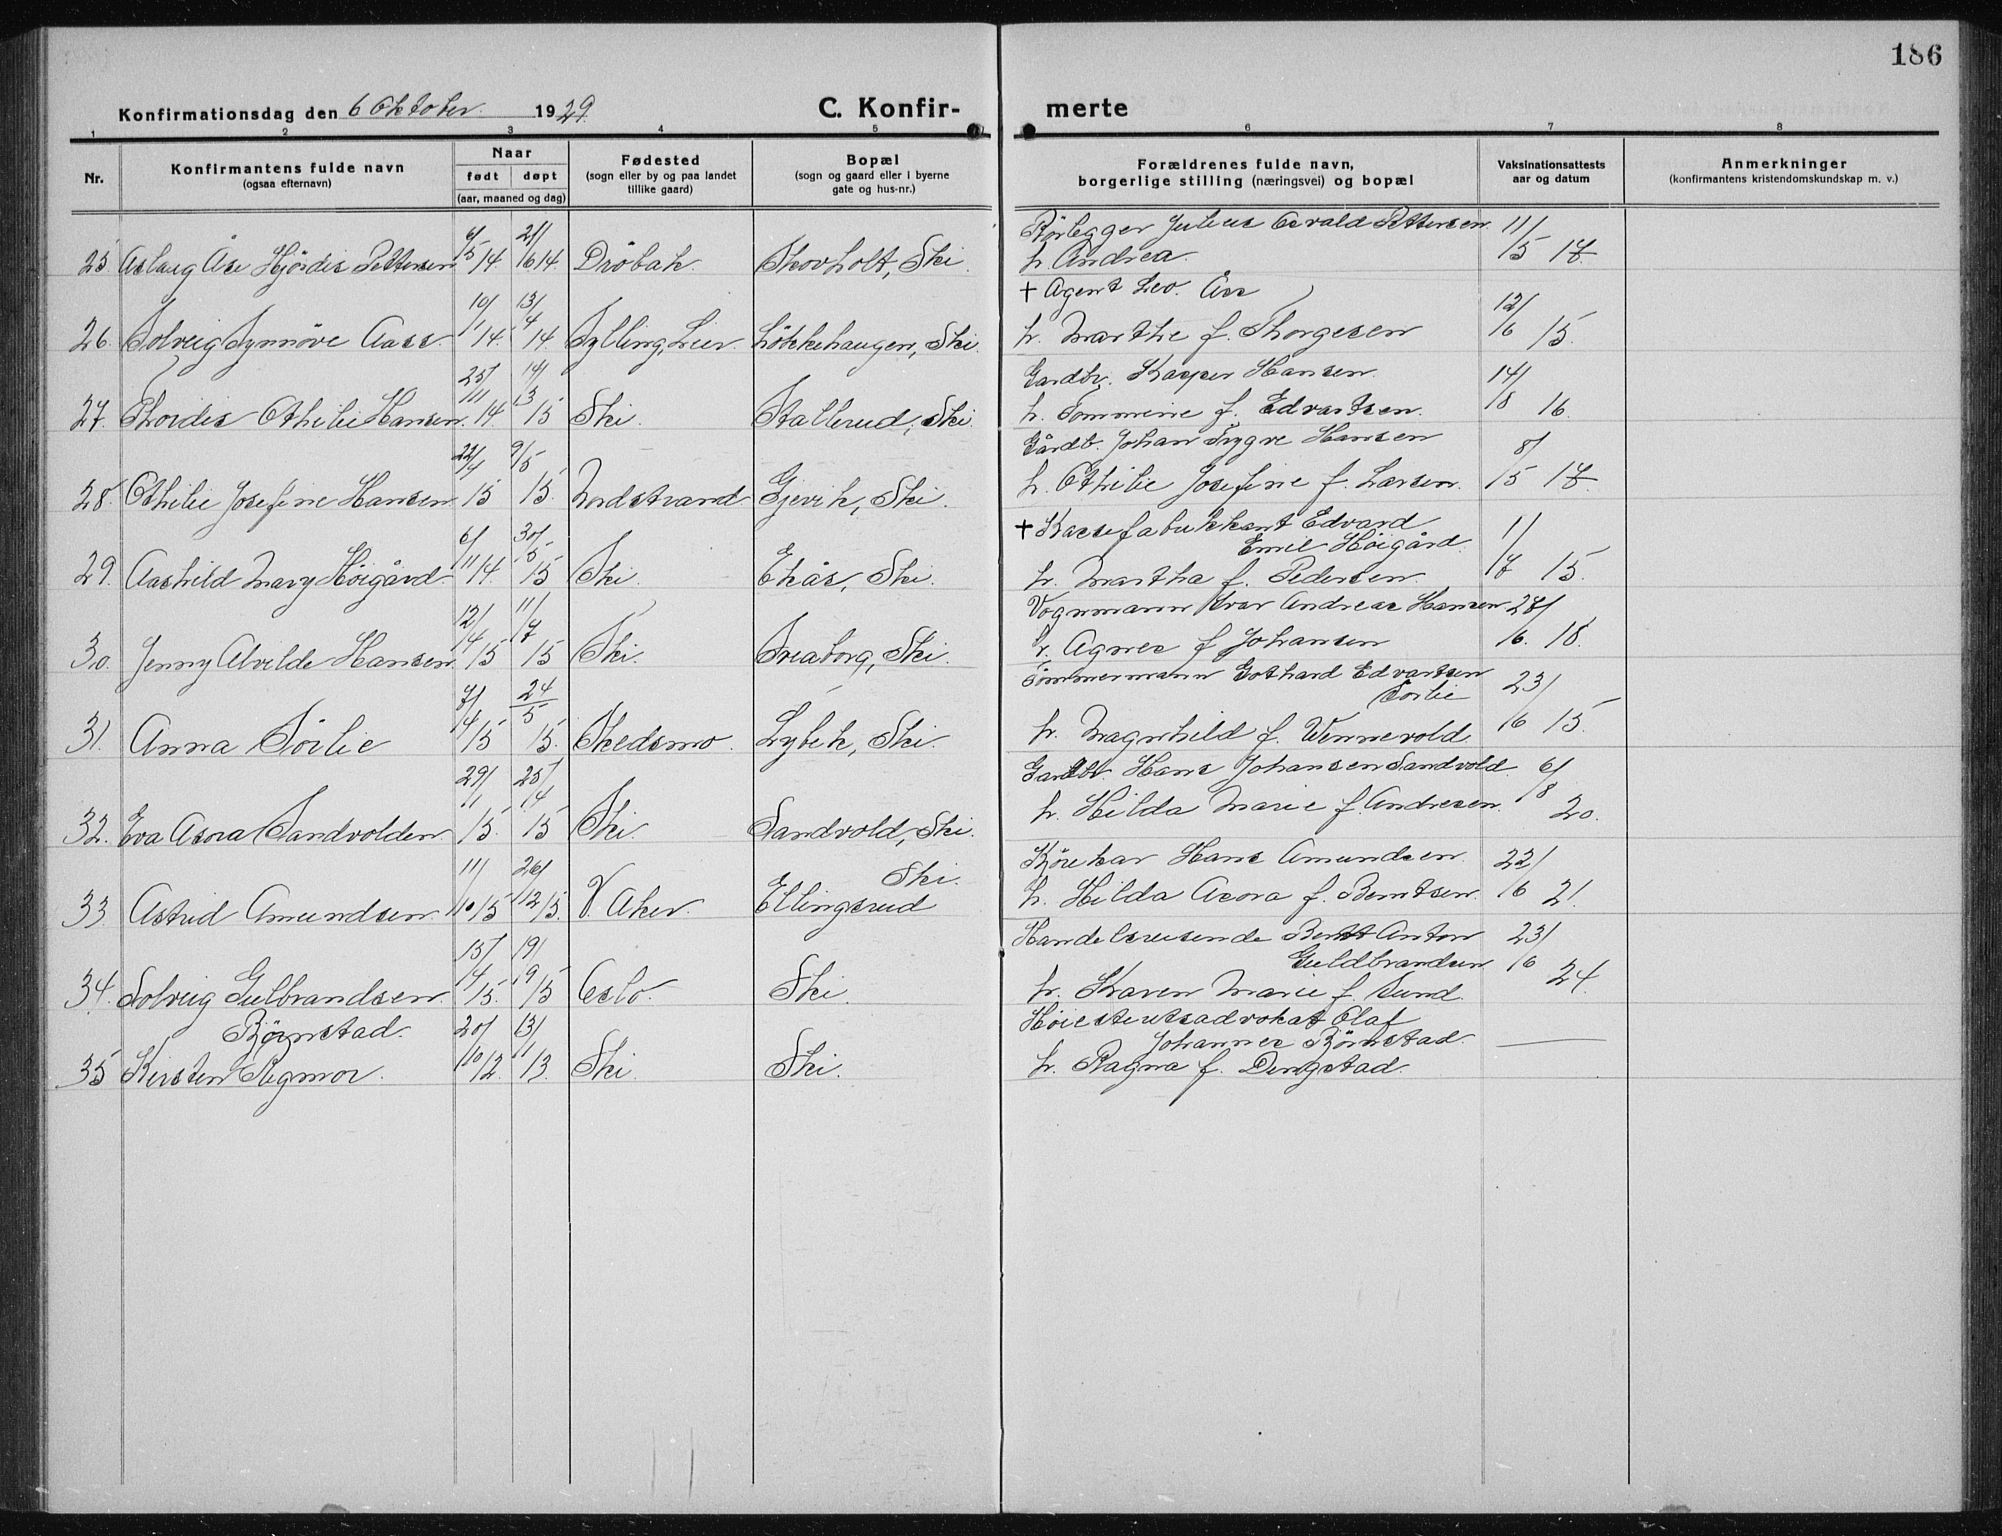 186
Konfirmationsdag den 6 Oktober 1929.
C. Konfir- merte
1 2 3 4 5 6 7 8
Nr.
Konfirmantens fulde navn
(ogsaa efternavn)
Naar
født døpt
(aar, maaned og dag)
Fødested
(sogn eller by og paa landet
tillike gaard)
Bopæl
(sogn og gaard eller i byerne
gate og hus-nr.)
Forældrenes fulde navn,
borgerlige stilling (næringsvei) og bopæl
Vaksinationsattests
aar og datum
Anmerkninger
(konfirmantens kristendomskundskap m. v.)
Rørlegger Julius Osvald Pettersen 11/5 17
25 Aslaug Åse Hjørdis Pettersen 6/5 14. 21/6 14. Drøbak Skovholt, Ski. h. Andrea
+ Agent Leo. Ås
26. Solveig Synnøve Aass. 10/1 14. 13/4 14 Sylling, Lier. Løkkehaugen, Ski. h. Marthe f. Thorgesen 12/6 15.
Gardbr. Kasper Hansen.
27. Thordis Othilie Hansen. 25/11 14. 14/3 15 Ski. Stallerud, Ski. h. Tommine f. Edvartsen. 14/8 16.
Gårdb. Johan Trygve Hansen
28. Othilie Josefine Hansen 22/4 15 9/5 15. Nordstrand Gjevik, Ski. h. Othilie Josefine f. Larsen. 8/5 17.
+ Kassefabrikkant Edvard
Emil Høigård.
29. Aashild Mary Høigård 6/11 14. 30/5 15 Ski. Ekås, Ski. h. Martha f. Pedersen. 1/7 15.
Vognmann Ivar Andreas Hansen 27/6. 18.
30. Jenny Alvilde Hansen 12/4 15 11/7 15 Ski. Sveaborg, Ski. h. Agnes f Johansen
Tømmermann Gothard Edvartsen
Sørlie
31. Anna Sørlie 7/4 15 24/5 15. Skedsmo. Lybek, Ski. h. Magnhild f. Wennevold 23/6 15.
Gardbr. Hans Johansen Sandvold.
32. Eva Asora Sandvolden 29/1 15. 25/4 15 Ski. Sandvold, Ski. h. Hilda Marie f. Andresen. 6/8 20.
Kørekar Hans Amundsen.
Ski.
33. Astrid Amundsen 11/10 15 26/12 15. V. Aker. Ellingsrud h. Hilda Asora f. Berntsen. 22/6 21.
Handelsreisende Bernt Anton
Guldbrandsen
34. Solveig Gulbrandsen. 15/4 15. 19/9 15 Oslo. Ski. h. Karen Marie f. Sund. 23/6 24.
Høiesterettsadvokat Olaf
Børnstad. Johannes Børnstad.
35 Kirsten Rigmor. 20/10 12. 13/11 13. Ski. Ski. h. Ragna f. Dingstad.